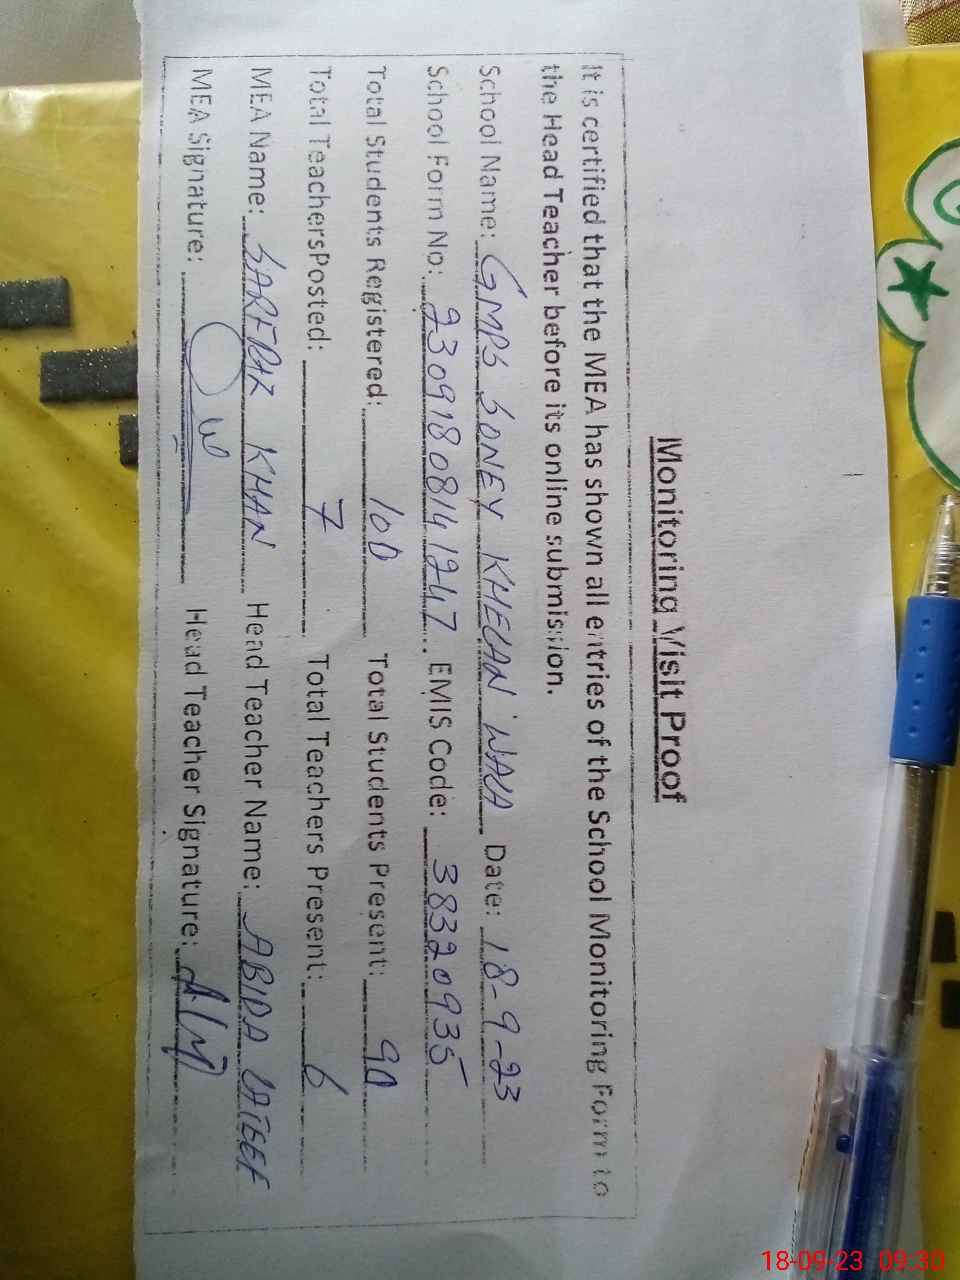 Monitoring Visit Proof
It is certified that the MEA has shown all entries of the School Monitoring Form to
the Head Teacher before its online submission.
School Name: GMPS SONEY KHELAN WALA Date: 18-9-23
School Form No: 23091808141247 EMIS Code: 38320935
Total Students Registered: 100 Total Students Present: 90
Total TeachersPosted: 7 Total Teachers Present: 6
MEA Name: SARFRAZ KHAN Head Teacher Name: ABIDA LATEEF
MEA Signature: Head Teacher Signature:
18-09-23 09:30